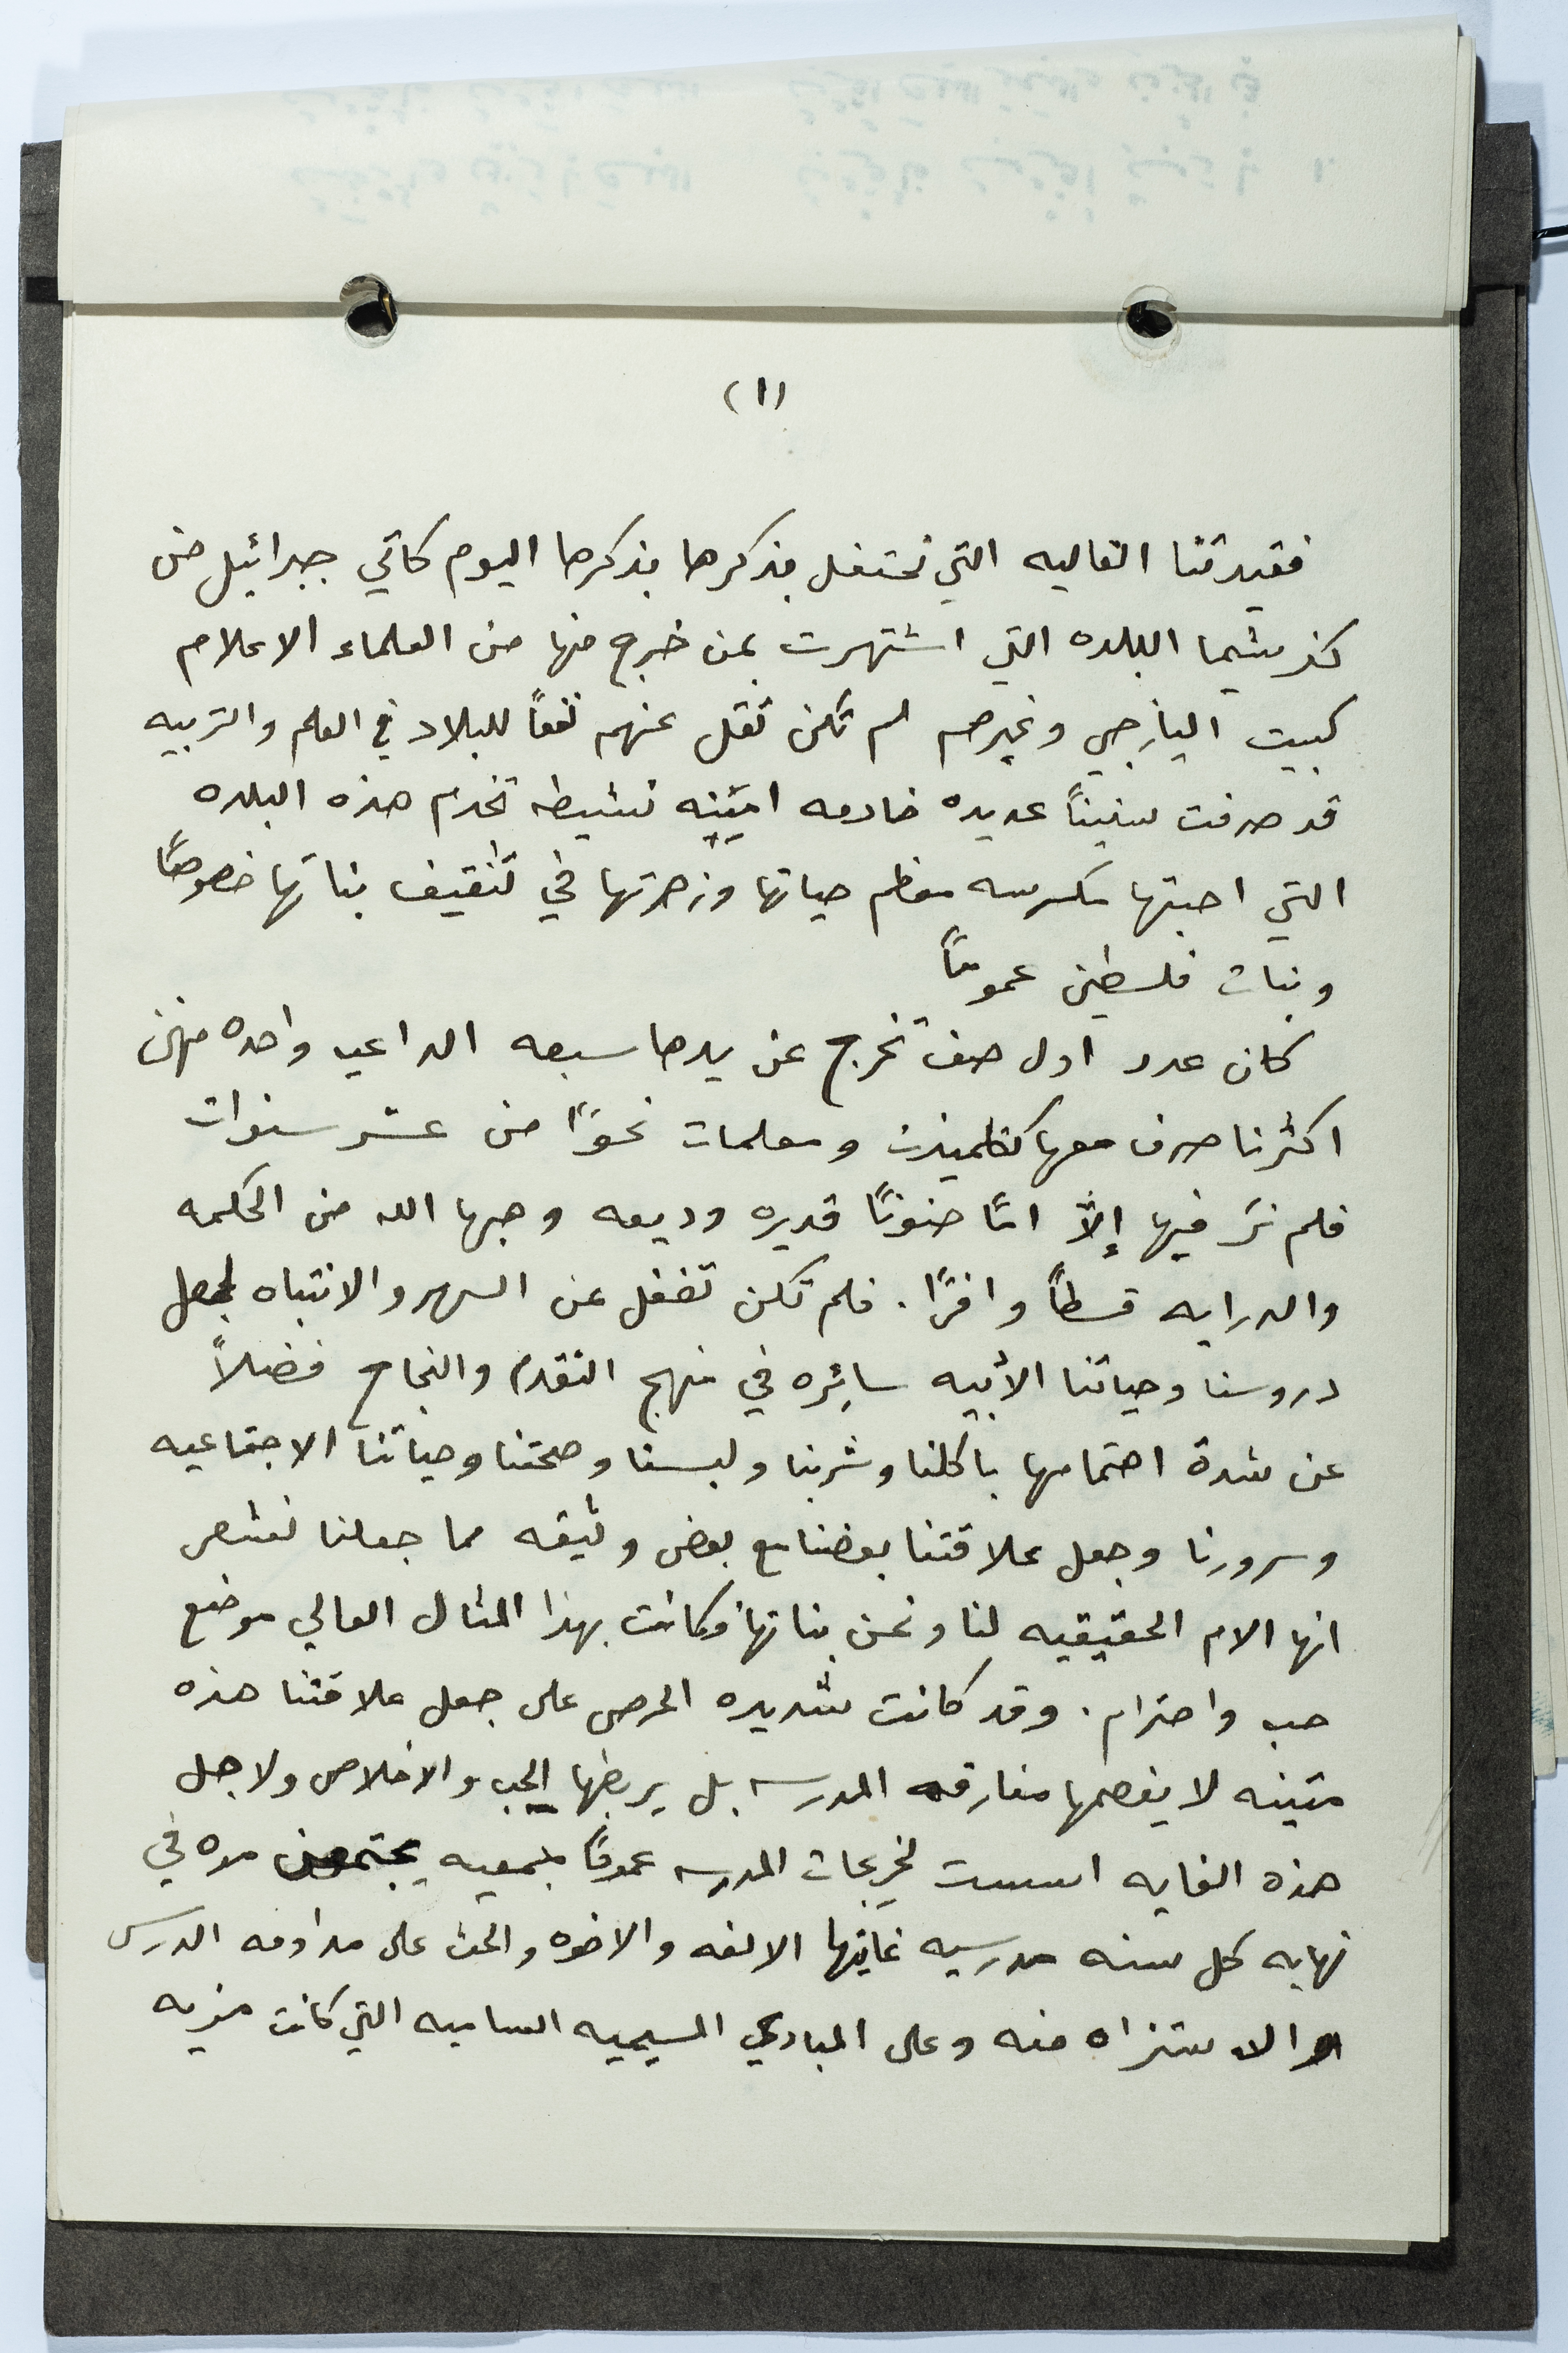 (١)
فقيدتنا الغاليه التي نحتفل بذكرها بذكرها اليوم كاتي جبرائيل من
كفرشيما البلده التي اشتهرت بمن خرج منها من العلماء الاعلام
كبيت اليازجي وغيرهم لم تكن تقل عنهم نفعاً للبلاد في العلم والتربيه
قد صرفت سنيناً عديده خادمه امينه نشيطه تخدم هذه البلده
التي احبتها مكرسه معظم حياتها وزهرتها في تثقيف بناتها خصوصًا
وبنات فلسطين عمومًا
كان عدد اول صف تخرج عن يدها سبعه الداعيه واحده منهن
اكثرنا صرف معها كتلميذات ومعلمات نحوًا من عشر سنوات
فلم نرَ فيها إلّا امًا حنونًا قديره وديعه وهبها الله من الحكمه
والدرايه قسطاً وافرًا. فلم تكن تغفل عن السهر والانتباه لجعل
دروسنا وحياتنا الأبيه سائره في منهج التقدم والنجاح فضلاً
عن شدة اهتمامها باكلنا وشربنا ولبسنا وصحتنا وحياتنا الاجتماعيه
وسرورنا وجعل علاقتنا بعضنا مع بعض وثيقه مما جعلنا نشعر
انها الام الحقيقيه لنا ونحن بناتها وكانت بهذا المثال العالي موضع
حب واحترام. وقد كانت شديده الحرص على جعل علاقتنا هذه
متينه لا يفصمها مفارقه المدرسه بل يربطها الحب والاخلاص ولاجل
هذه الغايه اسست لخريجات المدرسه عمومًا جمعيه يجتمعن مره في
نهايه كل سنه مدرسيه غايتها الالفه والاخوه والحث على مداومه الدرس
والاستزاه منه وعلى المبادي المسيحيه الساميه التي كانت مزيه